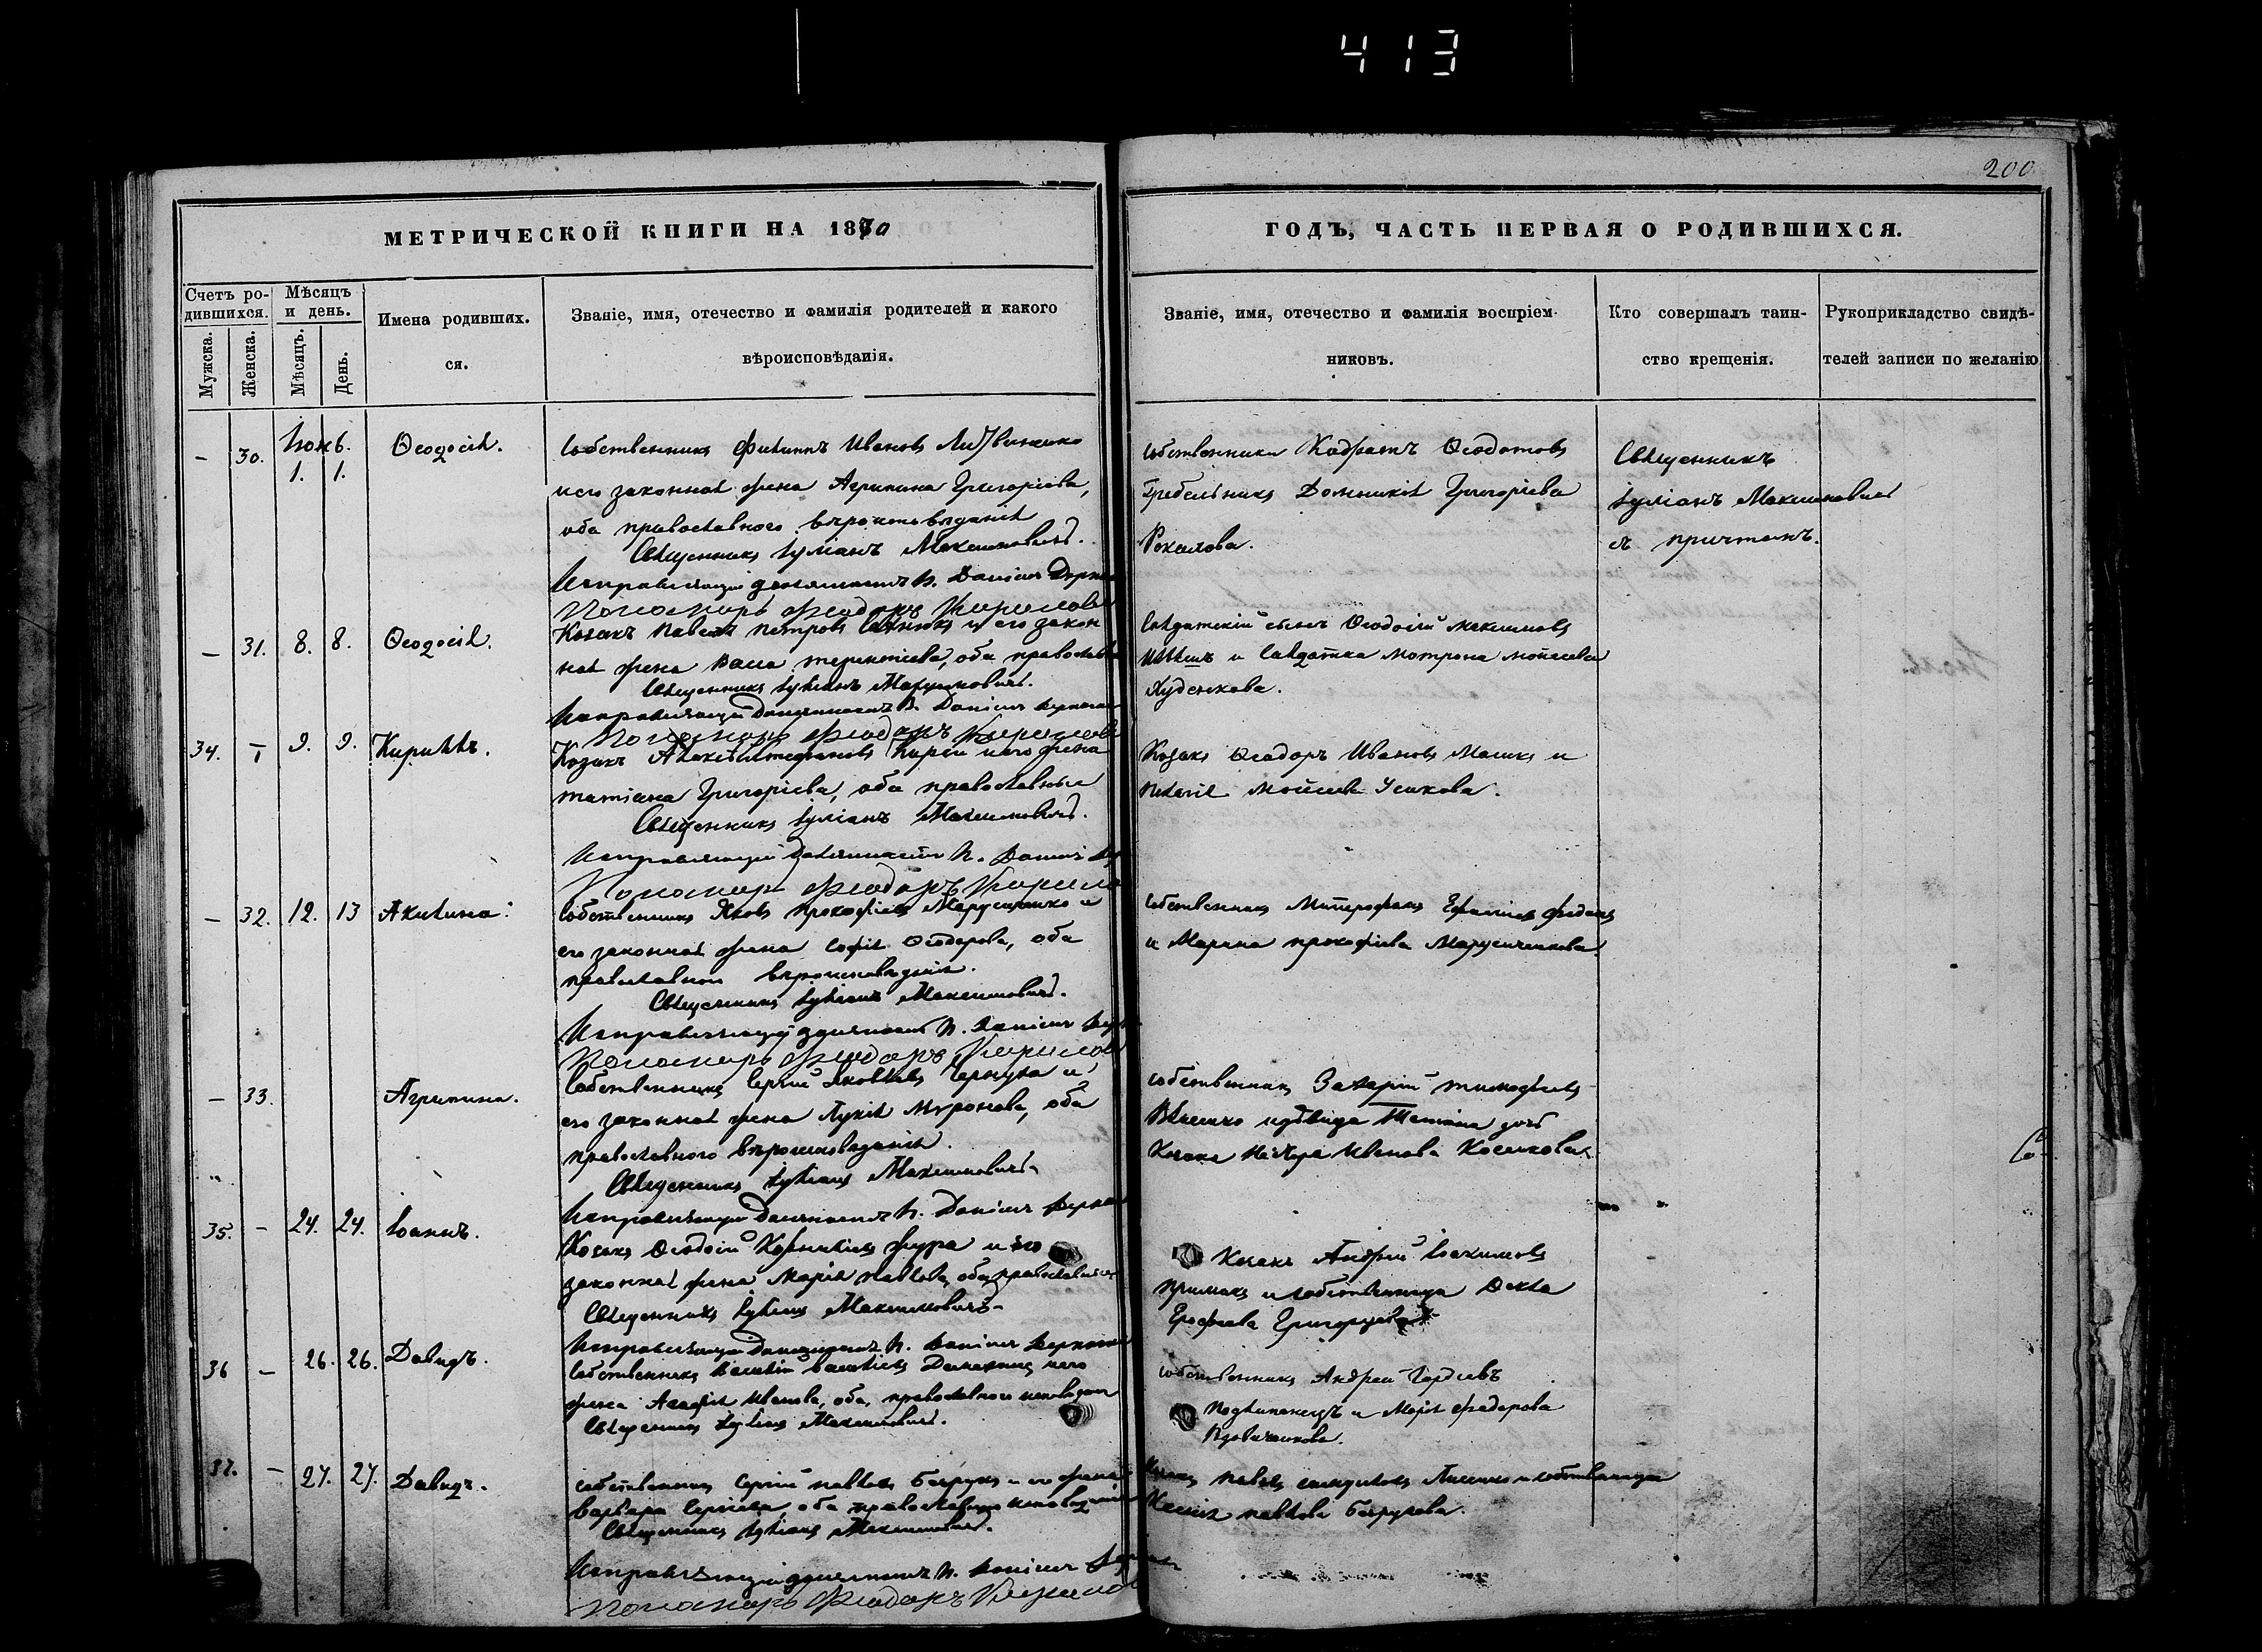 413
200
МЕТРИЧЕСКОЙ КНИГИ НА 1870
ГОДЪ, ЧАСТЬ ПЕРВАЯ О РОДИВШИХСЯ.
Счетъ ро-
дившихся.
Мужска.
Женска.
Мѣсяцъ
и день.
Мѣсяцъ.
День.
Имена родивших.
ся.
Званіе, имя, отечество и фамилія родителей и какого
вѣроисповѣданія.
Званіе, имя, отечество и фамилія воспріем-
никовъ.
Кто совершалъ таин-
ство крещенія.
Рукоприкладство свидѣ-
телей записи по желанію
— 30. Іюнь. 1. 1. Ѳеодосія.
Собственникъ Филиппъ Ивановъ Литвиненко
и его законная жена Агрипина Григоріева,
оба православного вѣроисповѣданія
Священникъ Іуліанъ Максимовичъ.
Исправляющій должность П. Даніилъ
Пономарь Феодоръ Кириловъ
Собственникъ Кодратъ Ѳеодотовъ
Гребельникъ Домникія Григоріева
Священникъ
Іуліанъ Максимовичъ
съ причтомъ.
— 31. 8. 8. Ѳеодосія.
Козакъ Павелъ Петровъ и его закон
ная жена Васса Терентіева, оба православ
Священникъ Іуліанъ Максимовичъ.
Исправляющій должность П. Даніилъ
Пономарь Феодоръ Кириловъ
Солдатскій сынъ Ѳеодосій Максимовъ
и Солдатка Мотрона Мойсеева
Худенкова.
34. — 9. 9. Кириллъ.
Козакъ Алексѣй Стефановъ и его жена
Татіана Григоріева, оба православные
Священникъ Іуліанъ Максимовичъ.
Исправляющій должность П. Даніилъ
Пономарь Феодоръ Кирило
Козакъ Ѳеодоръ Ивановъ и
Пелагія Мойсеева Усикова.
— 32. 12. 13 Акилина.
Собственникъ Яковъ Прокофіевъ Марусиченко и
его законная жена Софія Ѳеодорова, оба
православнои вѣроисповѣданія.
Священникъ Іуліанъ Максимовичъ.
Исправляющій должность П. Даніилъ
Пономарь Феодоръ Кирилов
Собственникъ Митрофанъ
и Марина Прокофіева Марусиченкова.
— 33. Агрипина.
Собственникъ Сергій Яковлевъ Чернуха и
его законная жена Лукія Миронова, оба
православного вѣроисповѣданія.
Священникъ Іуліанъ Максимовичъ
Исправляющій должность П. Даніилъ
Собственникъ Захарій Тимофѣевъ
дочь
Козака Ивановa Косенкова
35. — 24. 24. Іоаннъ.
Козакъ Ѳеодосій Корниліевъ и его
законная жена Марія Павлова, оба православные
Священникъ Іуліанъ Максимовичъ
Исправляющій должность П. Даніилъ
Козакъ Андрей Іоакимовъ
Примакъ и собственница Ѳекла
Ерофѣева
36 — 26. 26. Давидъ.
Собственникъ Василій Василіевъ и его
жена Агафія Иванова, оба православного исповѣданія
Священникъ Іуліанъ Максимовичъ.
Собственникъ Андрей Гордѣевъ
и Марія Федорова
Вдовиченкова.
37. — 27. 27. Давидъ.
Собственникъ Сергій Павловъ и его жена
Варвара Сергіева, оба православного исповѣданія
Священникъ Іуліанъ Максимовичъ.
Исправляющій должность П. Даніилъ
Пономарь Феодоръ Кирилов
Козакъ Павелъ и собственница
Ксенія Павлова